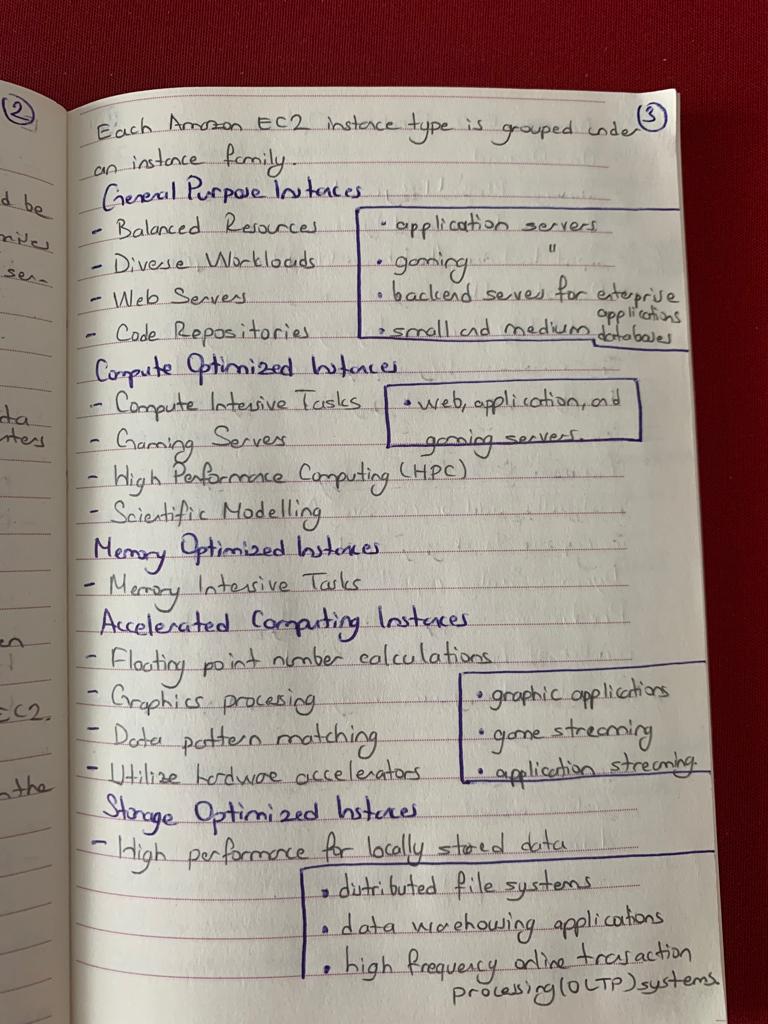 2
d be
ser-
ta
ters
en
EC2.
the
3
Each Amazon EC2 instance type is grouped under
an instance family.
General Purpose Instances
- Balanced Resources
- Diverse Workloads
- Web Servers
- Code Repositories
• application servers
• gaming "
• backend serves for enterprise
applications
• small and medium databases
Compute Optimized Instances
- Compute Intensive Tasks
- Gaming Servers
- High Performance Computing (HPC)
- Scientific Modelling
• web, application, and
gaming servers.
Memory Optimized Instances
- Memory Intensive Tasks
Accelerated Computing Instances
- Floating point number calculations
- Graphics procesing
- Data pattern matching
- Utilize hardware accelerators
• graphic applications
• game streaming
• application streaming
Storage Optimized Instances
- High performance for locally stored data
• distributed file systems
• data warehousing applications
• high frequency online transaction
processing (OLTP) systems